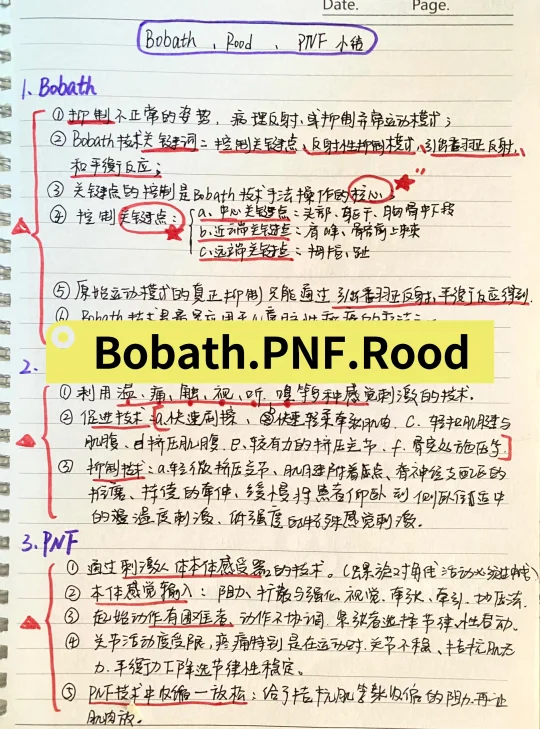 Date. Page.
Bobath、Rood、PNF小结
1. Bobath
① 抑制不正常的姿势,病理反射,或抑制异常运动模式;
② Bobath技术关键词:控制关键点、反射性抑制模式、引出翻正反射、
和平衡反应;
③ 关键点的控制是Bobath技术手法操作的核心;
④ 控制关键点:
a、中心关键点:头部、躯干、胸骨中下段
b.近端关键点:肩峰、髂前上棘
c、远端关键点:拇指、趾
⑤ 原始运动模式的真正抑制只能通过引出翻正反射,平衡反应得到.
Bobath.PNF.Rood
2.
① 利用温、痛、触、视、听、嗅等多种感觉刺激的技术.
② 促进技术:a.快速刷擦、b快速轻柔牵张肌肉. C. 轻扣肌腱与
肌腹、d挤压肌腹. e、较有力的挤压关节、f. 骨突处施压
③ 抑制技术:a、轻微挤压关节、肌腱附着点、脊神经支配区的
持续的牵伸、缓慢将患者仰卧到侧卧
的温温度刺激、低强度的特殊感觉刺激。
3. PNF
① 通过刺激人体本体感受器的技术。
② 本体感觉输入:阻力、扩散与强化、视觉、牵张、牵引、挤压法.
③ 起始动作有困难者,动作不协调,紧张者选择节律性启动.
④ 关节活动度受限,疼痛特别是在运动时,关节不稳、拮抗肌无
力.平衡功下降选节律性稳定。
⑤ PNF技术中收缩—放松:给予拮抗肌等张收缩的阻力.再让
肌肉放。